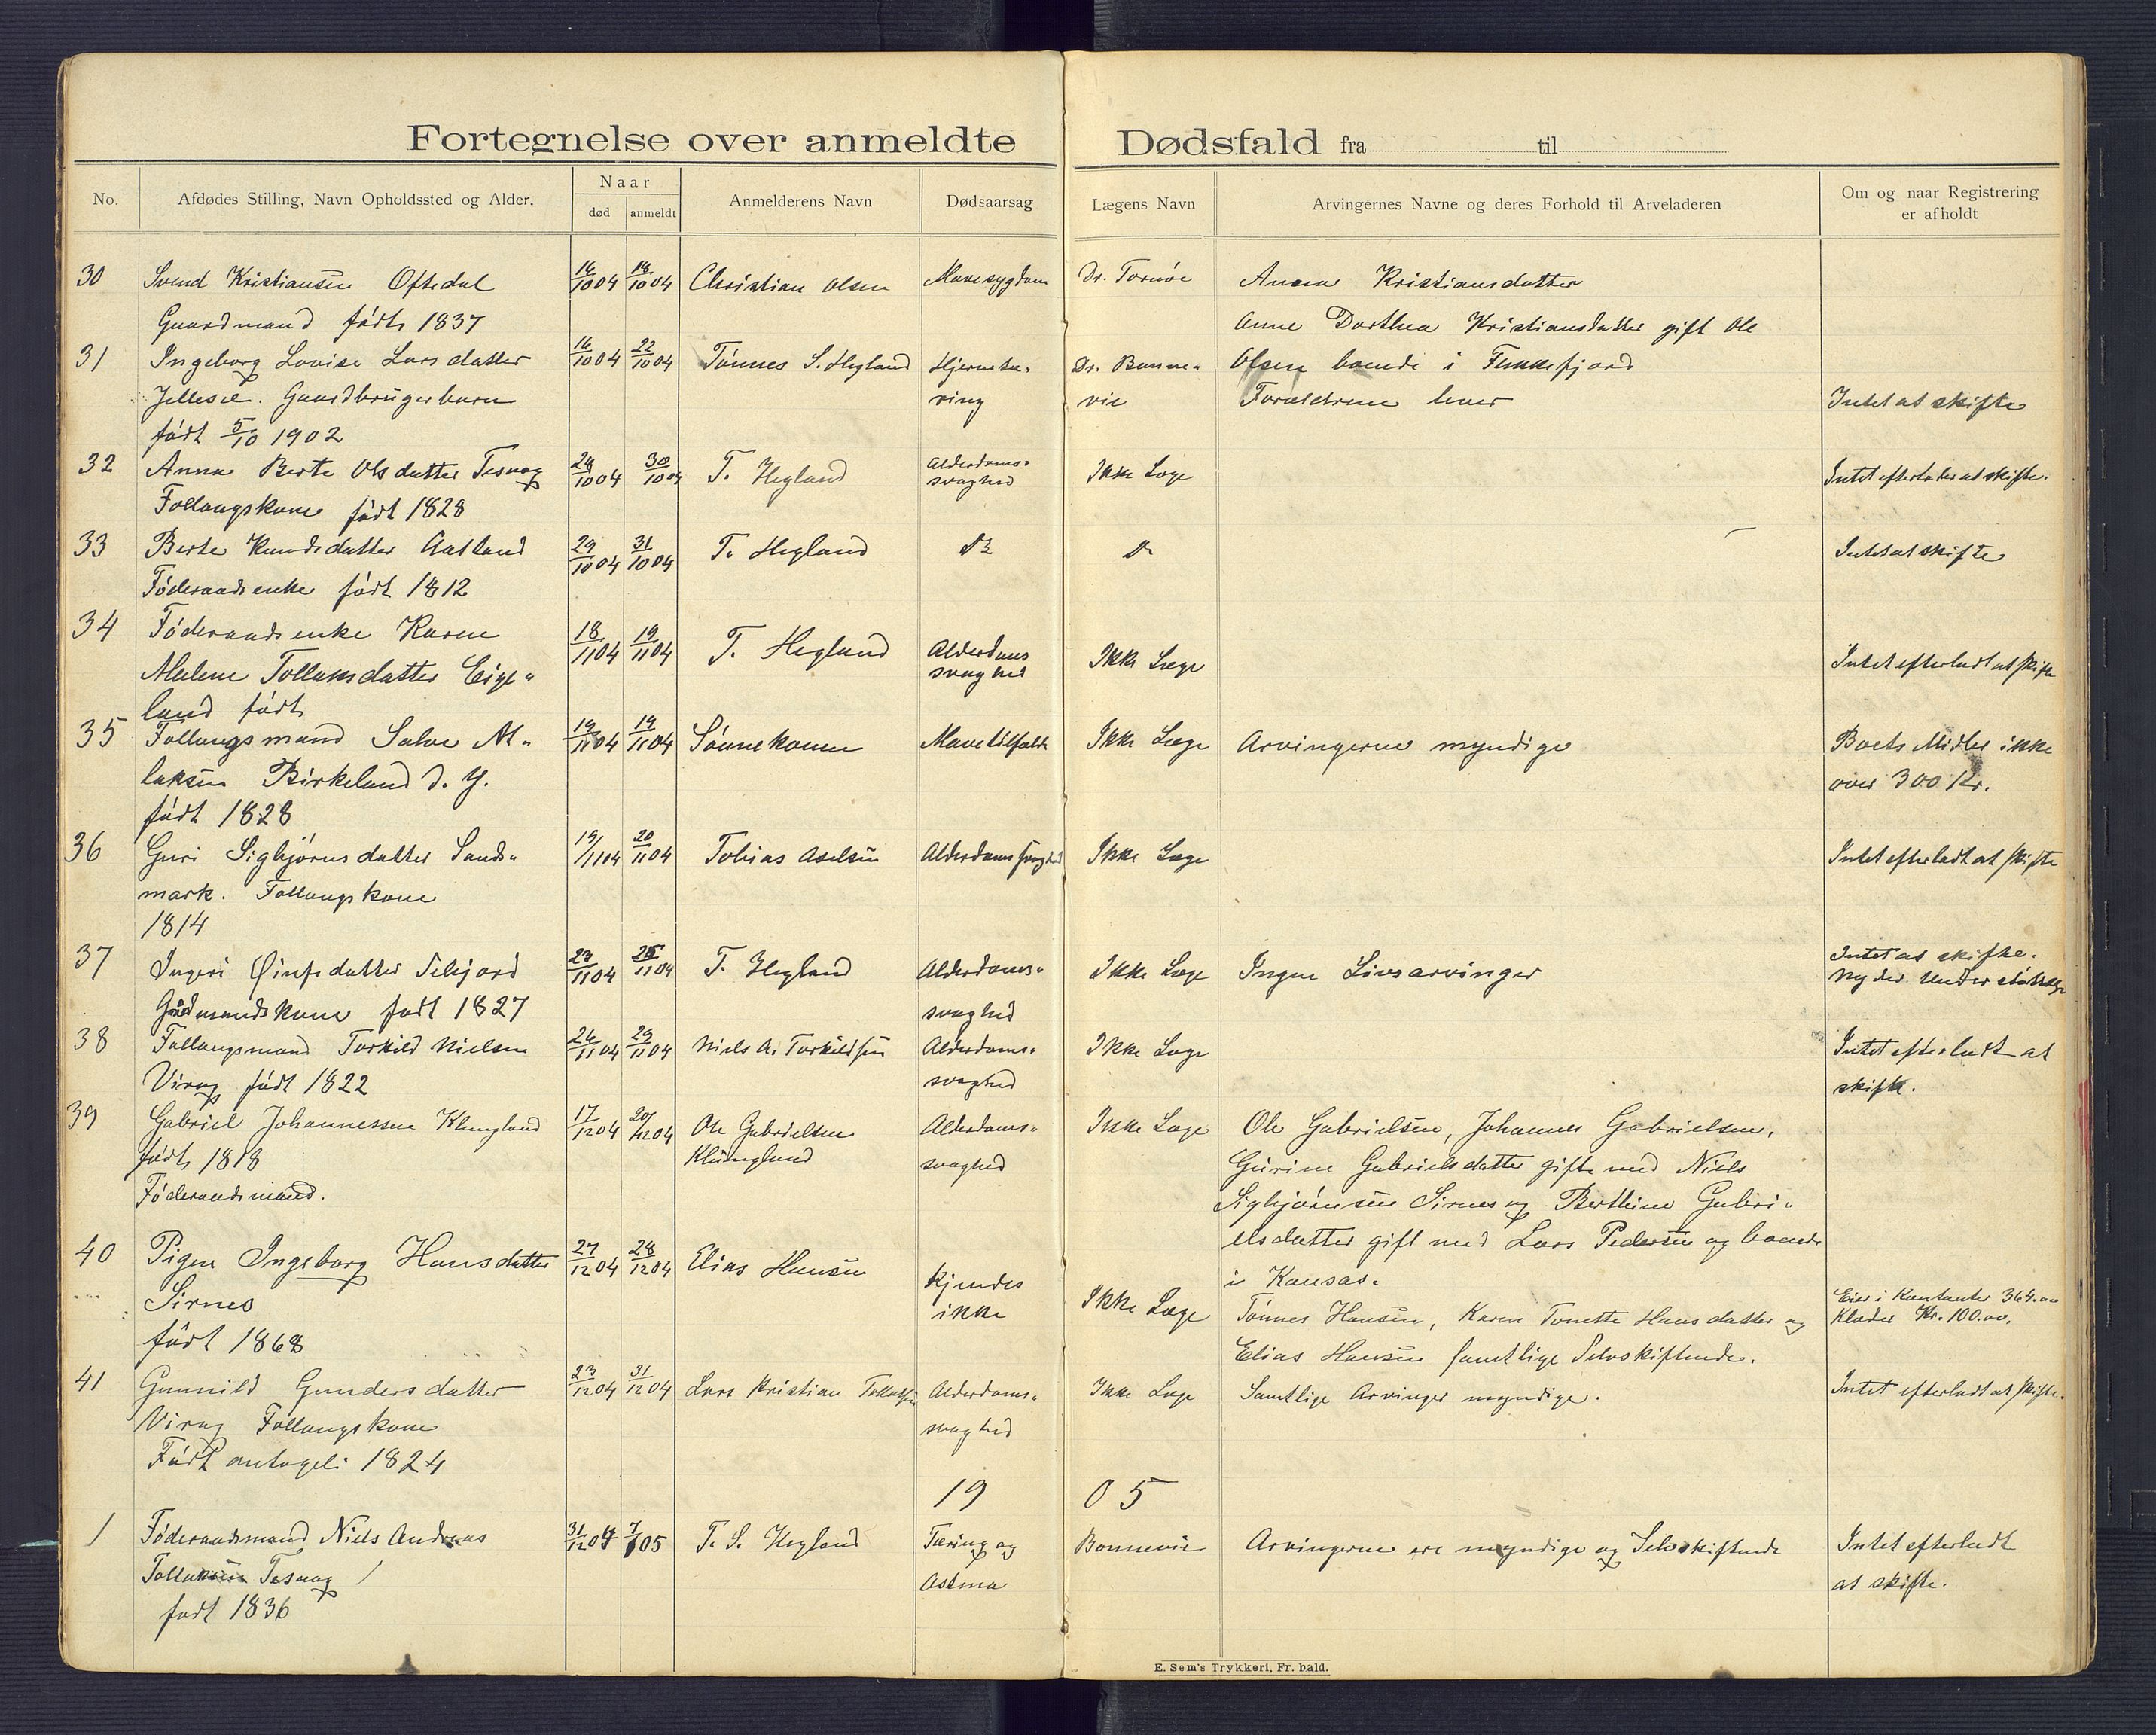 Fortegnelse over anmeldte Dødsfald fra til
No.
Afdødes Stilling, Navn Opholdssted og Alder.
Naar
død
anmeldt
Anmelderens Navn
Dødsaarsag
Lægens Navn
Arvingernes Navne og deres Forhold til Arveladeren
Om og naar Registrering
er afholdt
30 Svend Kristiansen Oftedal 16/10 04 18/10 04 Christian Olsen Mavesygdom Dr. Tornøe Anna Kristiansdatter
Gaardmand født 1837 Anne Dorthea Kristiansdatter gift Ole
31 Ingeborg Lovise Larsdatter 16/10 04 22/10 04 Tønnes S. Hegland Hjernetæ- Dr. Bonne- Olsen boende i Flekkefjord
Jellesel. Gaardbrugerbarn ring vie Forældrene lever Intet at skifte
født 5/10 1902
32 Anna Berte Olsdatter Tesvag 10 04 30/10 04 T. Hegland Alderdoms- Ikke Læge Intet efterlades at skifte.
Follaugskone født 1828 svaghed
33 Berte Knudsdatter Aatland 29/10 04 31/10 04 T. Hegland do do Intet at skifte
Føderaadsenke født 1812
34 Føderaadsenke Karen 18/11 04 19/11 04 T. Hegland Alderdoms Ikke Læge Intet efterladt at skifte
Malene Tollaksdatter Eige- svaghed
land født
35 Follaugsmand Salve At- 19/11 04 19/11 04 Sønnekonen Mavetilfælde Ikke Læge Arvingerne myndige Boets Midler ikke
laksen Birkeland d. y. over 300 Kr.
født 1828
36 Guri Sigbjørnsdatter Sands- 19/11 04 20/11 04 Tobias Aselsen Alderdomssvaghed Ikke Læge Intet efterladt at skifte
mark. Follaugskone
1814
37 Ingeri Øinfsdatter Selejord 23/11 04 25/11 04 T. Hegland Alderdoms- Ikke Læge Ingen Livsarvinger Intet at skifte.
Gaardmandskone født 1827 svaghed Nyder Understøttelse
38 Follaugsmand Torkild Nielsen 26/11 04 29/11 04 Niels A. Torkildsen Alderdoms- Ikke Læge Intet efterladt at
Virag født 1822 svaghed skifte.
39 Gabriel Johannessen Klungland 17/12 04 20/12 04 Ole Gabrielsen Alderdoms- Ikke Læge Ole Gabrielsen, Johannes Gabrielsen,
født 1818 Klungland svaghed Gurine Gabrielsdatter gift med Niels
Føderaadsmand. Sigbjørnsen Sirnes og Berthine Gabri-
elsdatter gift med Lars Pedersen og boende
i Kansas.
40 Pigen Ingeborg Hansdatter 27/12 04 28/12 04 Elias Hansen Kjendes Ikke Læge Eier i Kontanter 364.00
Sirnes ikke Tønnes Hansen, Karen Tonette Hansdatter og Klæder Kr. 100.00.
født 1868 Elias Hansen samtlige Selvskiftende.
41 Gunnild Gundersdatter 23/12 04 31/12 04 Lars Kristian Tollaksen Alderdoms- Ikke Læge Samtlige Arvinger myndige. Intet efterladt at skifte.
Virag Follaugskone svaghed
Født antageli 1824
19 05
1 Føderaadsmand Niels Andreas 31/12 04 7/1 05 T. S. Hegland Tæring og Bonnevie Arvingerne ere myndige og Selvskiftende Intet efterladt
Tollaksen Tesvag Astma at skifte.
født 1836
E. Sem's Trykkeri, Fr.hald.